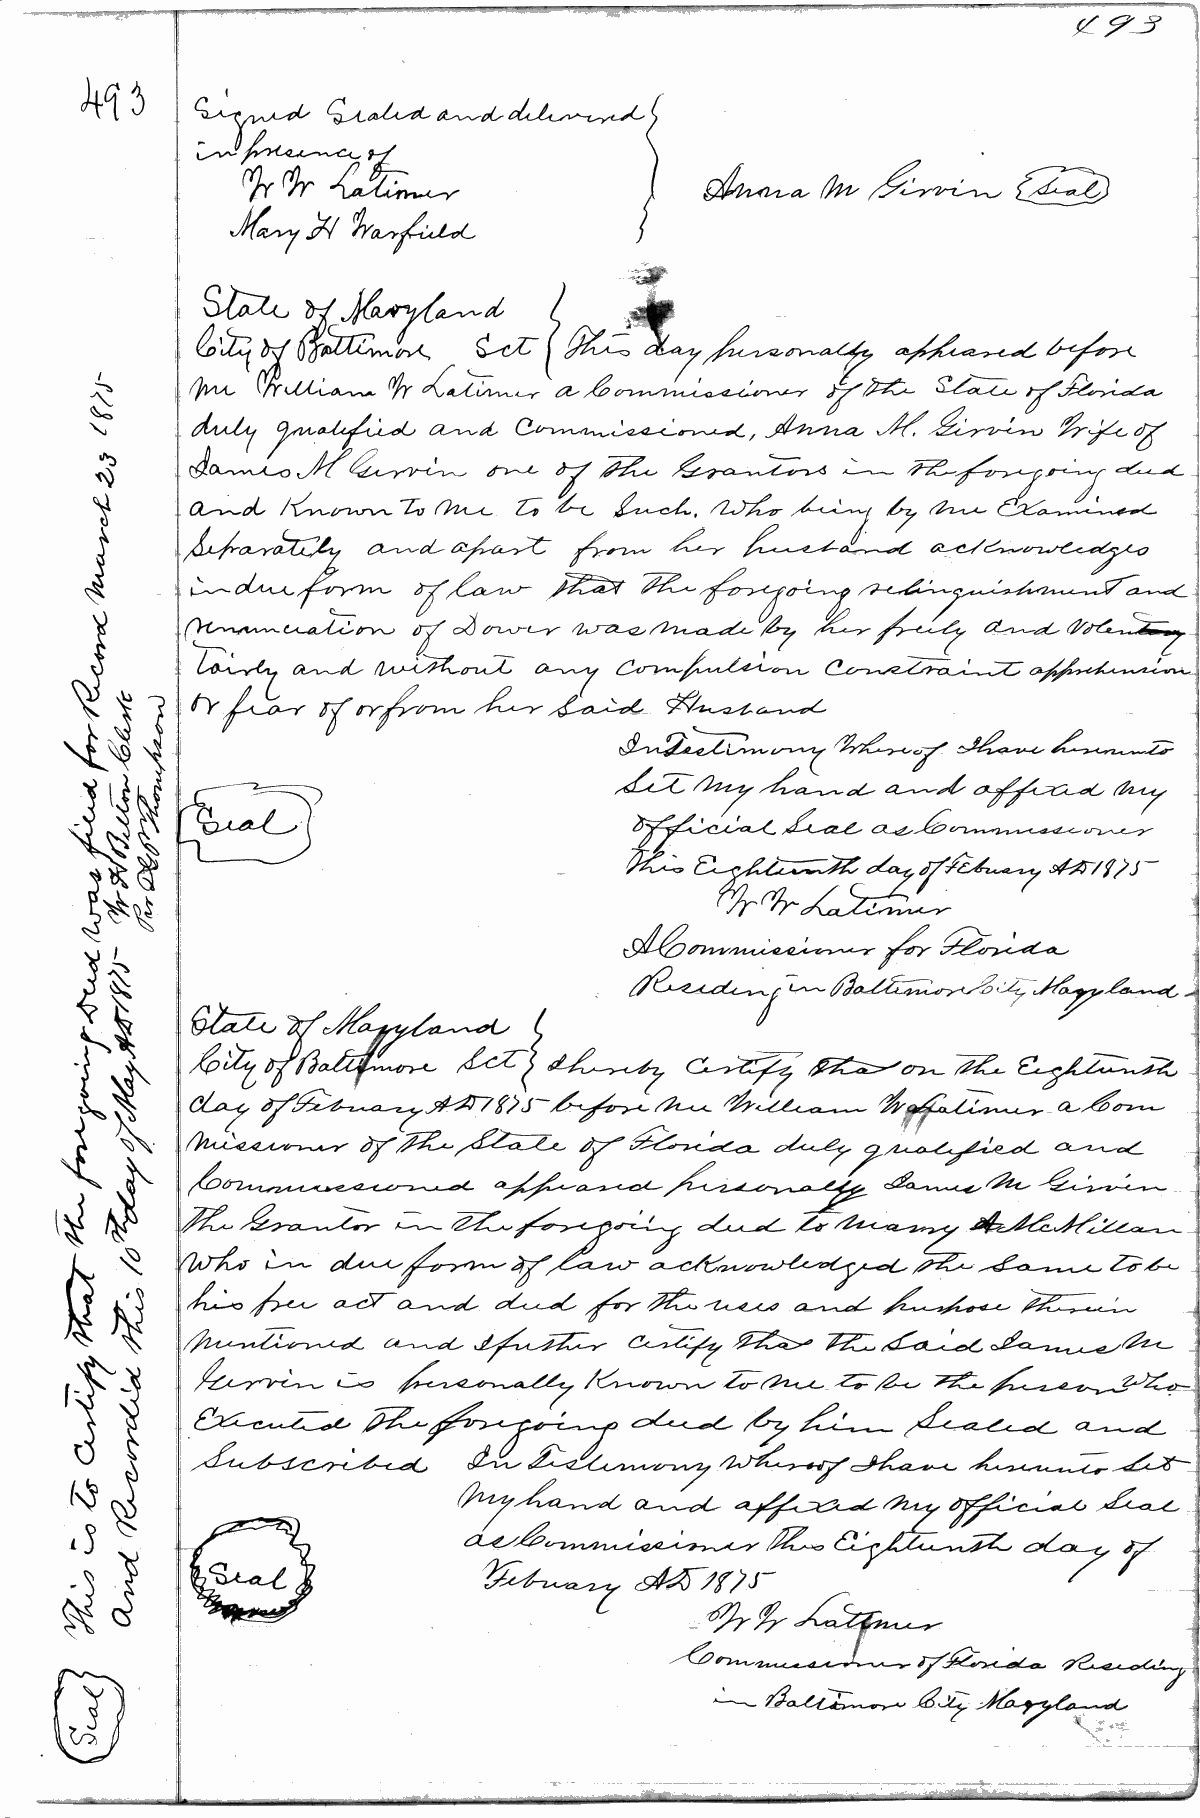 493
493
Signed Sealed and delivered
in presence of
W W Latimer
Mary H Warfield
Anna M Girvin Seal
State of Maryland
City of Baltimore Sct This day personally appeared before
me William W Latimer a Commissioner of the State of Florida
duly qualified and Commissioned, Anna M. Girvin Wife of
James M Girvin one of the Grantors in the foregoing deed
and Known to me to be Such. Who being by me Examined
Separately and apart from her husband acknowledges
in due form of law that the foregoing relinquishment and
renunciation of Dower was made by her freely and Volen
tairly and without any compulsion constraint apprehension
or fear of or from her Said Husband
In Testimony Whereof I have hereunto
Set my hand and affixed my
official Seal as Commissioner
this Eighteenth day of Febuary AD 1875
W W Latimer
A Commissioner for Florida
Residing in Baltimore City Maryland
Seal
State of Maryland
City of Baltimore Sct I hereby Certify that on the Eighteenth
day of Febuary AD 1875 before me William W Latimer a Com
missioner of the State of Florida duly qualified and
Commissioned appeared personally James M Girvin
the Grantor in the foregoing deed to McMillan
Who in due form of law acknowledged the same to be
his free act and deed for the uses and purpose therein
mentioned and I further certify that the Said James M
Girvin is personally Known to me to be the person who
Executed the foregoing deed by him Sealed and
Subscribed In Testimony Whereof I have hereunto Set
my hand and affixed my official Seal
as Commissioner this Eighteenth day of
Febuary AD 1875
W W Latimer
Commissioner of Florida Residing
in Baltimore City Maryland
Seal
This is to Certify that the foregoing Deed was filed for Record March 23 1875
and Recorded this 10th day of May AD 1875 W H Belton Clerk
Per Thompson
Seal